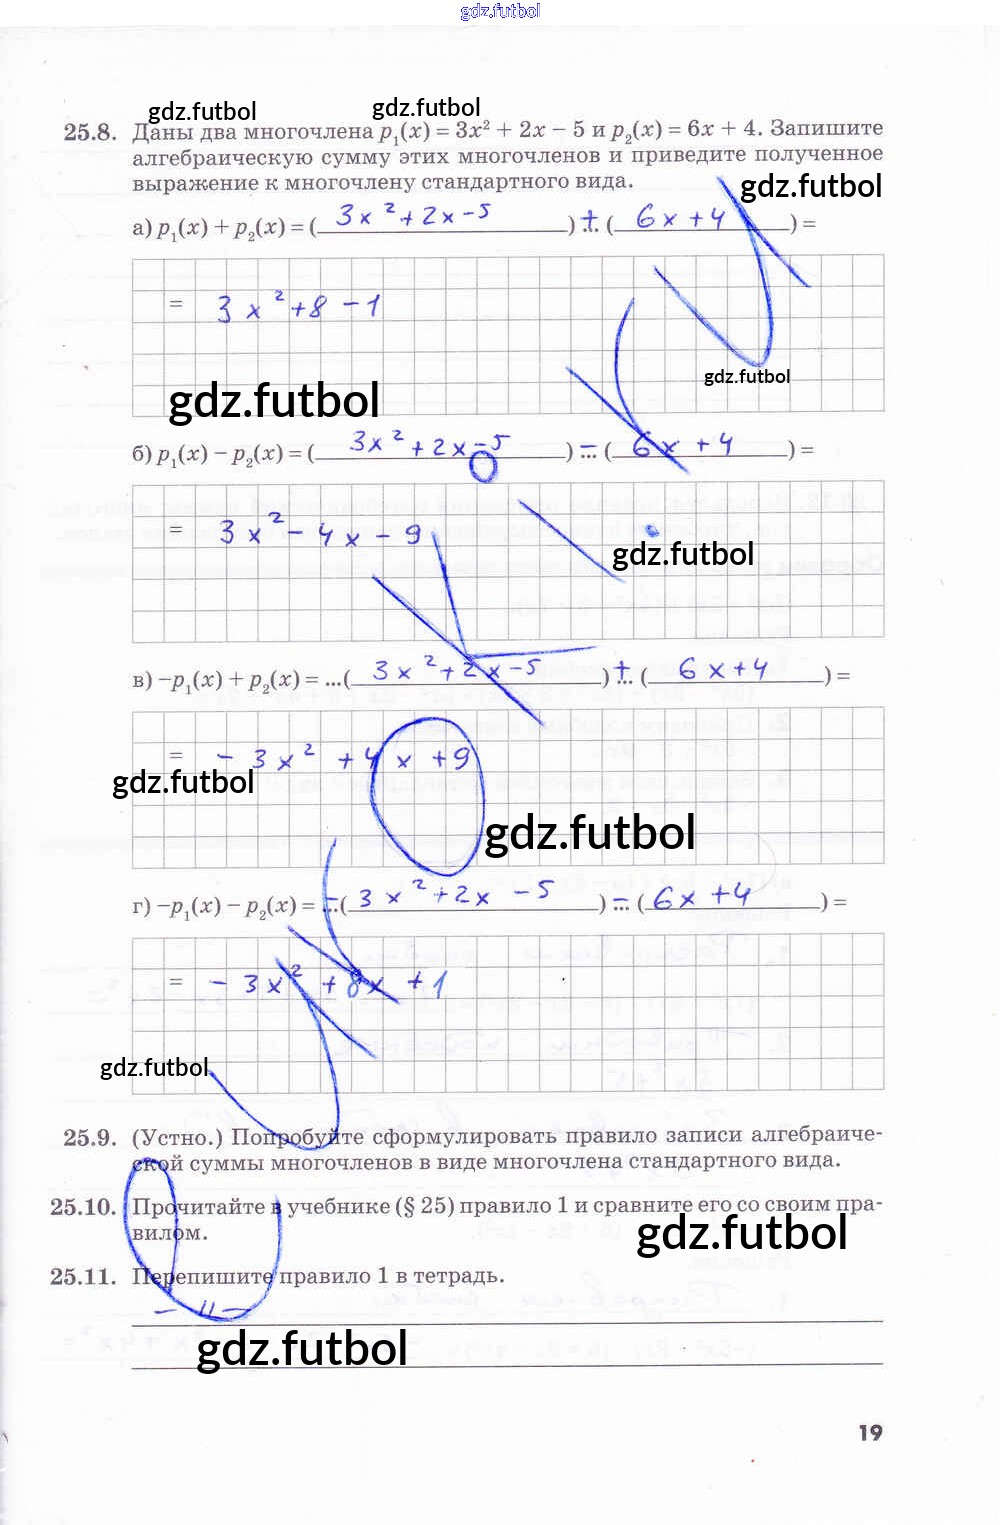 gdz.futbol
gdz.futbol gdz.futbol
25.8. Даны два многочлена p₁(x) = 3x² + 2x − 5 и p₂(x) = 6x + 4. Запишите
алгебраическую сумму этих многочленов и приведите полученное
выражение к многочлену стандартного вида.
gdz.futbol
а) p₁(x) + p₂(x) = (3x² + 2x − 5) + (6x + 4) =
= 3x² + 8 − 1
gdz.futbol
gdz.futbol
б) p₁(x) − p₂(x) = (3x² + 2x − 5) − ... (6x + 4) =
= 3x² − 4x − 9
gdz.futbol
в) −p₁(x) + p₂(x) = ...(3x² + 2x − 5) + ... (6x + 4) =
= − 3x² + 4x + 9
gdz.futbol
gdz.futbol
г) −p₁(x) − p₂(x) = − ...(3x² + 2x − 5) − ... (6x + 4) =
= − 3x² + 8x + 1
gdz.futbol
25.9. (Устно.) Попробуйте сформулировать правило записи алгебраиче-
ской суммы многочленов в виде многочлена стандартного вида.
25.10. Прочитайте в учебнике (§ 25) правило 1 и сравните его со своим пра-
вилом.
gdz.futbol
25.11. Перепишите правило 1 в тетрадь.
— 11 —
gdz.futbol
19